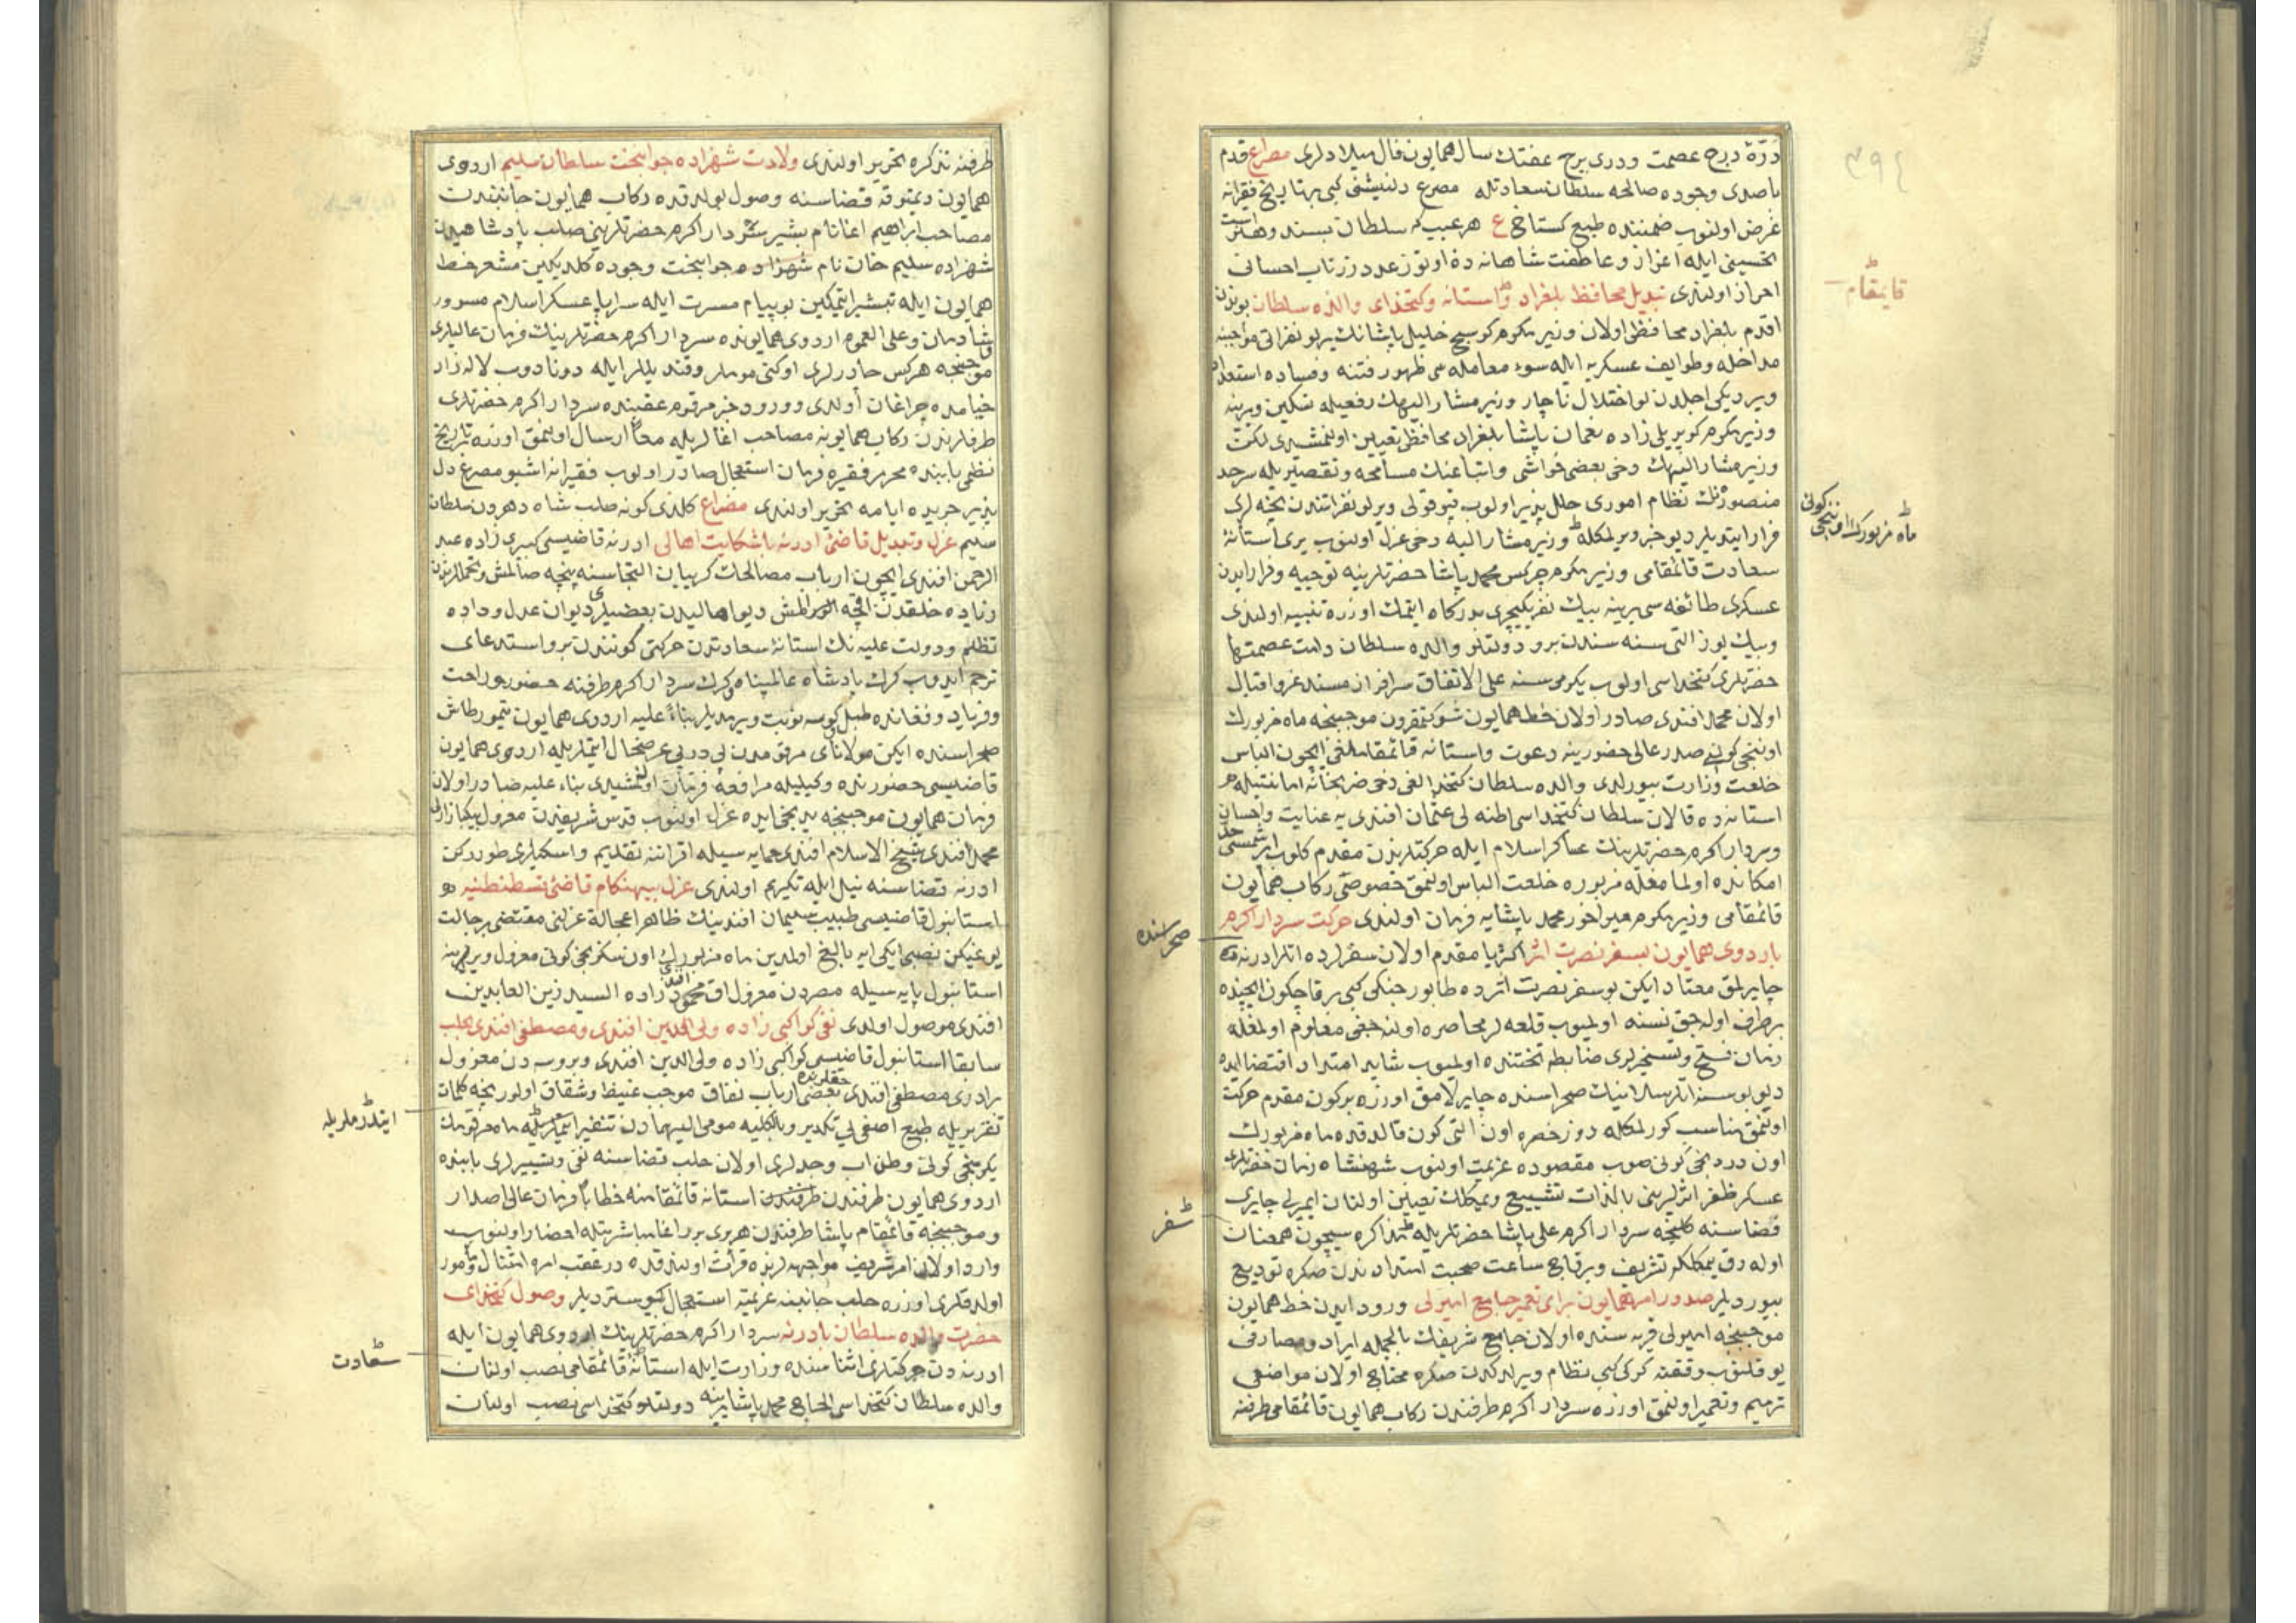 درّهٔ درج عصمت ودری برج عفتك سال همایون فال میلادلری مصراع قدم
باصدی وجوده صالحه سلطان سعادتله مصرع دلنیشنی كبی بر تاریخ فقیرانه
عرض اولنوب ضمننده طبع كستاخ ع هر عیب كه سلطان بپسندد هنر است
تحسینی ایله اعزاز وعاطفت شاهانه ده اوتوز عدد زرناب احسانی
احراز اولندی تبدیل محافظ بلغراد وآستانه وكتخدای والده سلطان بوندن
اقدم بلغراد محافظی اولان وزیر مكرم كوسج خلیل پاشانك یرلو نفراتی مواجبنه
مداخله وطوایف عسكریه ایله سوء معامله سی ظهور فتنه وفساده استعداد
ویردیكی اجلدن لواختلال ناچار وزیر مشار الیهك رفعیله تسكین ویرینه
وزیر مكرم كوپریلی زاده نعمان پاشا بلغراد محافظی تعیین اولنمشیدی لكن
وزیر مشار الیهك دخی بعضی حواشی واتباعنك مسامحه وتقصیریله سرحد
منصوره نك نظام اموری خلل پذیر اولوب قپوقولی ویرلو نفراتندن نیجه لری
فرار ایتدیلر دیو خبر ویرلمكله وزیر مشار الیه دخی عزل اولنوب یری آستانهٔ
سعادت قائمقامی وزیر مكرم چركس محمد پاشا حضرتلرینه توجیه وفرار ایدن
عسكری طائفه سی یرینه بیك نفر یكیچری بدركاه ایتمك اوزره تنبیه اولندی
وبیك یوز التی سنه سندن برو دولتلو والده سلطان دامت عصمتها
حضرتلری كتخداسی اولوب یكرمی سنه علی الاتفاق سرافراز مسند عز واقبال
اولان محمد افندی صادر اولان خط همایون شوكتمقرون موجبنجه ماه مزبورك
اوننجی كونی صدر عالی حضورینه دعوت وآستانه قائمقاملغی ایچون الباس
خلعت وزارت بیورلدی والده سلطان كتخدالغی دخی ضربخانه امانتیله
استانه ده قالان سلطان كتخداسی عثمان افندی یه عنایت واحسان
وسردار اكرم حضرتلرینك عساكر اسلام ایله حركتلرندن مقدم كلوب ایرشمسی حد
امكانده اولمامغله مزبوره خلعت الباس اولنمق خصوصی ركاب همایون
قائمقامی وزیر مكرم میراخور محمد پاشایه فرمان اولندی حركت سردار اكرم
باردوی همایون بسفر نصرت اثر اكثریا مقدم اولان سفرلرده اتلر ادرنه ده
چایرلمق معتاد ایكن بو سفر نصرت اثرده طابور جنكی كبی برقاچ كون ایچنده
برطرف اوله جق نسنه اولمیوب قلعه لر محاصره اولنه جغی معلوم اولمغله
زمان فتح وتسخیرلری ضابطه تحتنده اولمیوب شاید امتداد اقتضا ایده
دیو بو سنه اتلر سلانیك صحراسنده چایرلامق اوزره بر كون مقدم حركت
اولنمق مناسب كورلمكله روز خضره اون التی كون قالدقده ماه مزبورك
اون دردنجی كونی صوب مقصوده عزیمت اولنوب شهنشاه زمان حضرتلری
عسكر ظفر اثرلرینی بالذات تشییع ویمكلك تعیین اولنان ایمرلی چایری
قضاسنه كلنجه سردار اكرم علی پاشا حضرتلریله مذاكره ایچون همعنان
اوله رق یمكلكه تشریف وبرقاچ ساعت صحبت امتدادندن صكره تودیع
بیوردیلر صدور امر همایون برای تعمیر جامع ایمرلی ورود ایدن خط همایون
موجبنجه ایمرلی قریه سنده اولان جامع شریفك بالجمله ایراد ومصارفی
یوقلنوب وقفنه كركی كبی نظام ویرلدكدن صكره محتاج اولان مواضعی
ترمیم وتعمیر اولنمق اوزره سردار اكرم طرفندن ركاب همایون قائمقامی طرفنه
قایمقام
ماه مزبورك اوننجی كونی
صحراسنده
سفر
طرفنه تذكره تحریر اولندی ولادت شهزاده جوانبخت سلطان سلیم اردوی
همایون دیمتوقه قضاسنه وصول بولدقده ركاب همایون جانبندن
مصاحب ابراهیم اغا نام بشیر سردار اكرم حضرتلرینی صلب پادشاهیدن
شهزاده سلیم خان نام شهزاده جوانبخت وجوده كلدیكین مشعر خط
همایون ایله تبشیر ایتمكین بو پیام مسرت ایله سراپا عسكر اسلام مسرور
شادمان وعلی العموم اردوی همایونده سردار اكرم حضرتلرینك فرمان عالیلری
موجبنجه هركس چادرلری اوكنی موملر وقندیللر ایله دونادوب لاله زار
خیامده چراغان اولدی وورود خبر مرقوم عقبنده سردار اكرم حضرتلری
طرفلرندن ركاب همایونه مصاحب اغا لریله معا ارسال اولنمق اوزره تاریخ
نظمی بابنده محرر فقیره فرمان استعجال صادر اولوب فقیرانه اشبو مصرع دل
پذیر جریده ایامه تحریر اولندی مصراع كلدی كونه صلب شاه دهردن سلطان
سلیم عزل وتبدیل قاضئ ادرنه باشكایت اهالی ادرنه قاضیسی كبری زاده عبد
الرحمن افندی ایچون ارباب مصالحات كریبان التجاسنه پنچه صالمش
زیاده خلقدن اقچه المش دیو اهالیدن بعضیلری دیوان عدل وداده
تظلم ودولت علیه نك استانهٔ سعادتدن حركتی كونندن برو استدعای
ترحم ایدوب كرك پادشاه عالمپناه وكرك سردار اكرم طرفنه حضور وراحت
وفریاد وفغانده طبل كوسه نوبت ویرمدیلر بناءً علیه اردوی همایون تیمورطاش
صحراسنده ایكن مولانای مرقومدن پی درپی عرضحال ایتملریله اردوی همایون
قاضیسی حضورنده وكیلیله مرافعه فرمان اولنمشیدی بناء علیه صادر اولان
فرمان همایون موجبنجه یدنجی ایده عزل اولنوب قدس شریفدن معزول بیكپازاری
محمد افندی شیخ الاسلام افندی حمایه سیله اقراننه تقدیم واسكیلری طوررکن
ادرنه قضاسنه نیل ایله تكریم اولندی عزل بیهنكام قاضئ قسطنطنیه
استانبول قاضیسی طبیب سلیمان افندینك ظاهرا عجالة عزلنی مقتضی بر حالت
یوغیكن نصبی ایكی ایه بالغ اولمدین ماه مزبورك اون سكزنجی كونی معزول ویرینه
استانبول پایه سیله مصردن معزول اق محمود افندی زاده السید زین العابدین
افندی موصول اولدی نفی كواكبی زاده ولی الدین افندی ومصطفی افندی بحلب
سابقا استانبول قاضیسی كواكبی زاده ولی الدین افندی وبروسه دن معزول
برادری مصطفی افندی حقلرنده بعضی ارباب نفاق موجب غیظ وشقاق اولور نیجه كلمات
تقریریله طبع اصفی یی تكدیر وبالكلیه مومی الیهمادن تنفیر ایتدرملریله ماه مرقومك
یكرمنجی كونی وطن اب وجدلری اولان حلب قضاسنه نفی وتسییرلری بابنده
اردوی همایون طرفندن استانه قائمقامنه خطابا فرمان عالی اصدار
وموجبنجه قائمقام پاشا طرفندن هربری برر اغا مباشرتیله احضار اولنوب
وارد اولان امر شریف مواجهه لرنده قرائت اولندقده درعقب امره امتثال ومأمور
اولدقلری اوزره حلب جانبنه عزیمته استعجال كوستردیلر وصول كتخدای
حضرت والده سلطان بادرنه سردار اكرم حضرتلرینك اردوی همایون ایله
ادرنه دن حركتلری اثناسنده وزارت ایله استانهٔ قائمقامی نصب اولنان
والده سلطان كتخداسی الحاج محمد پاشا یرینه دولتلو كتخداسی نصب اولنان
ایتدرملریله
سعادت